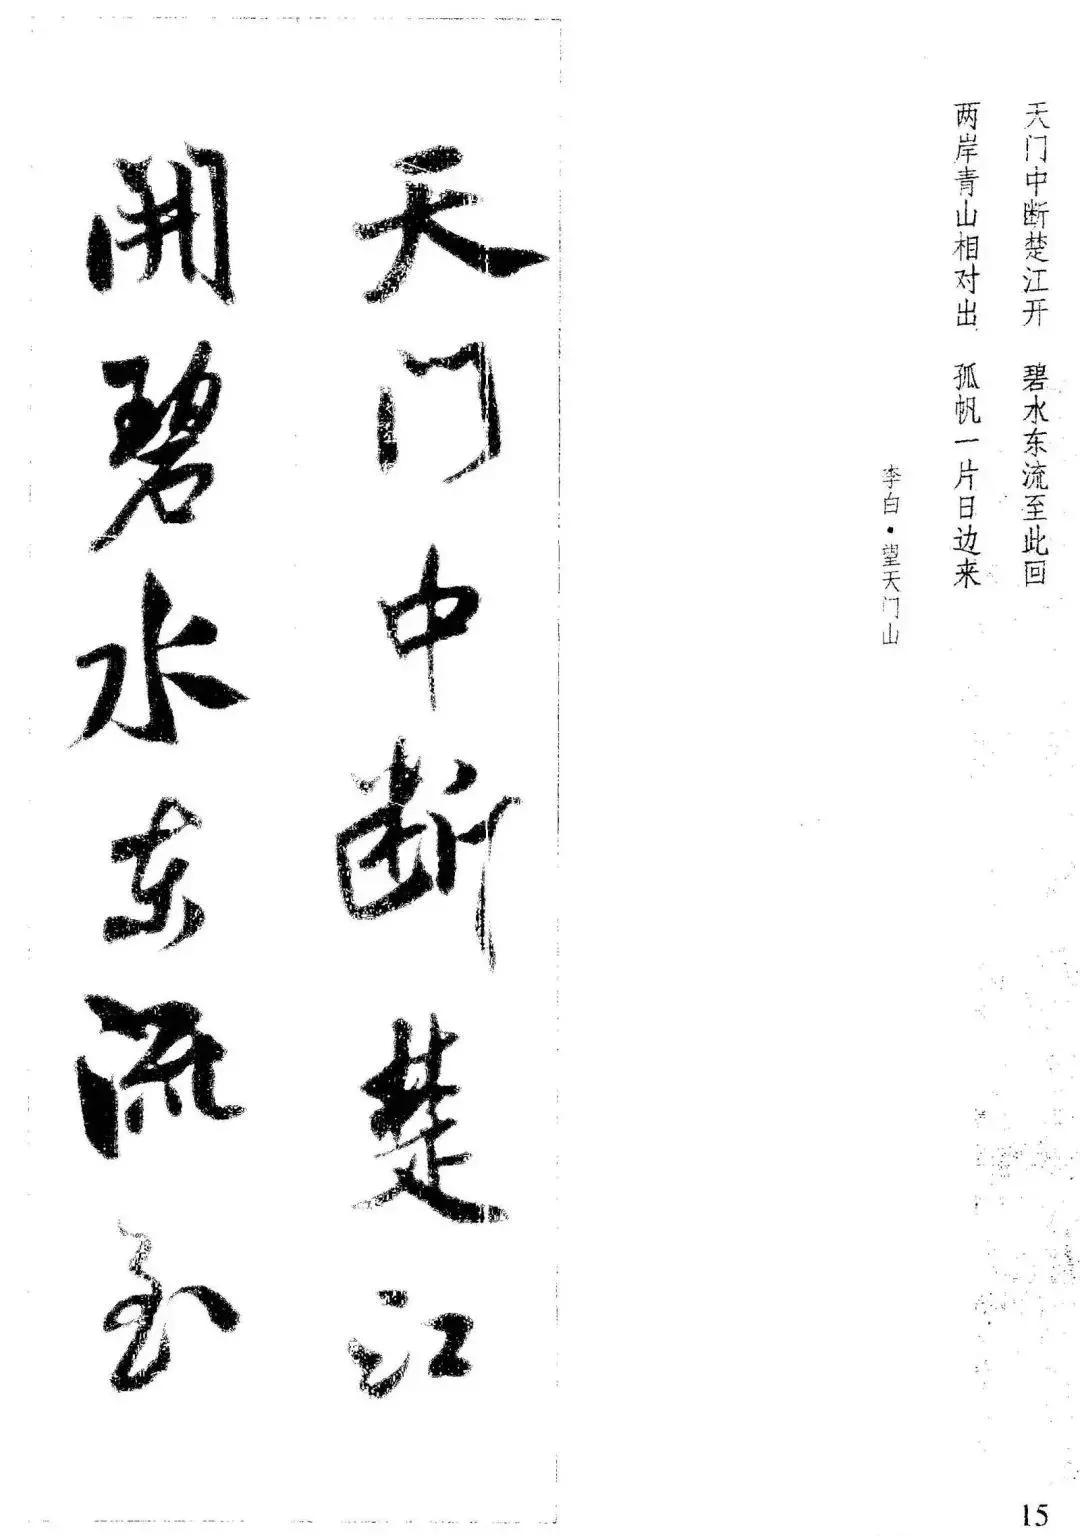 天门中断楚江开 碧水东流至此回
两岸青山相对出 孤帆一片日边来
李白·望天门山
天门中断楚江
開碧水东流至
15